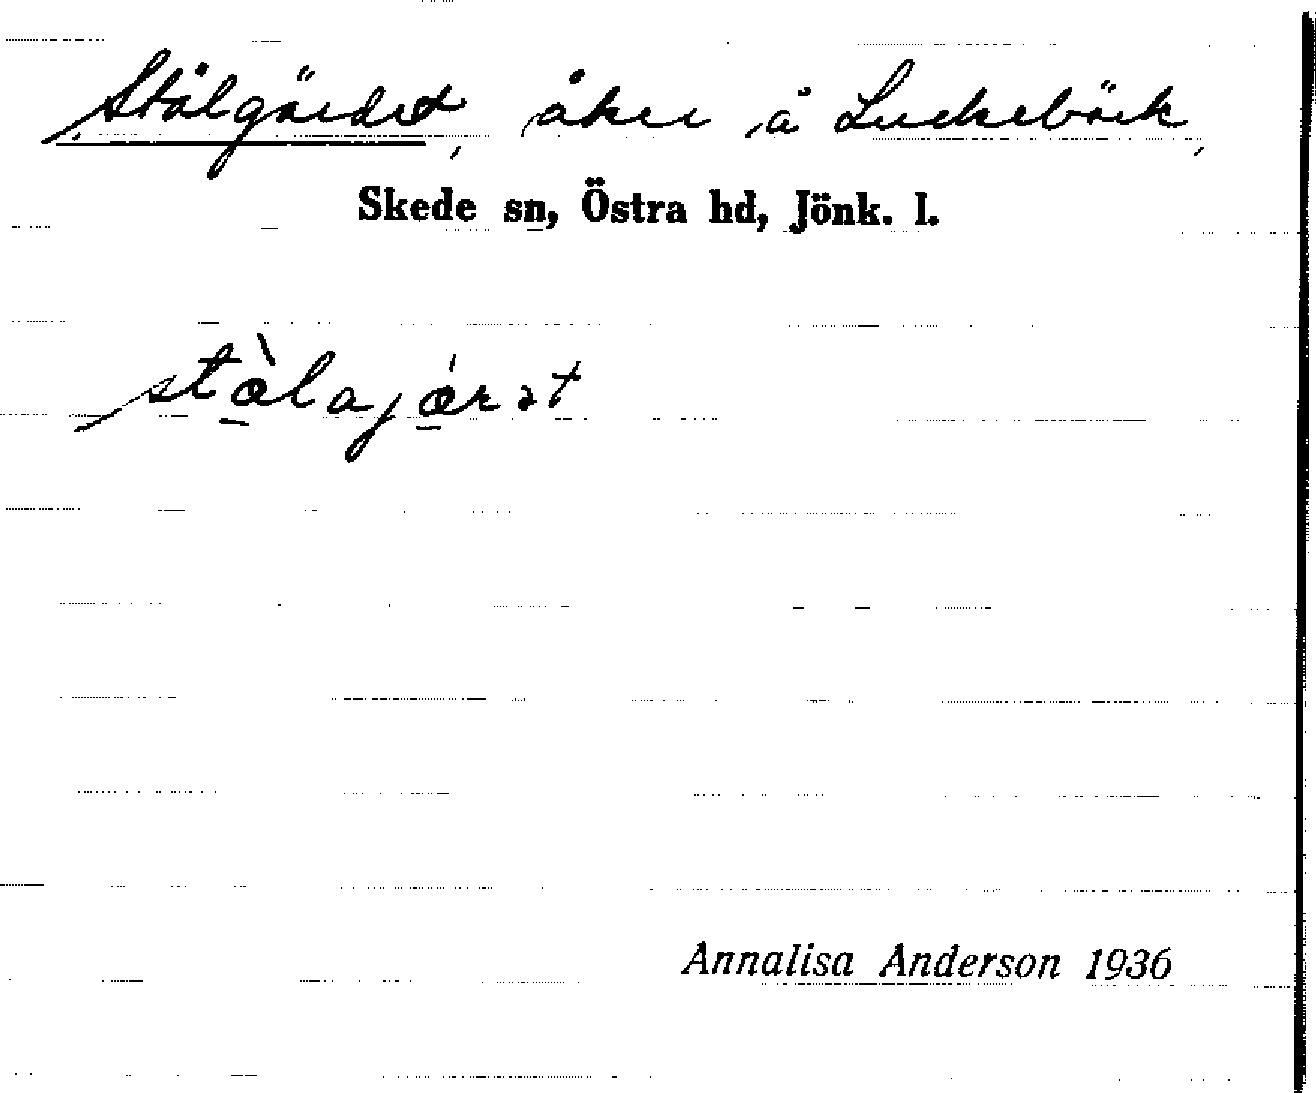 Stålgärdet, åker å Luckebäck,
Skede sn, Östra hd, Jönk. l.
stå̀lajæ̀rət
Annalisa Anderson 1936